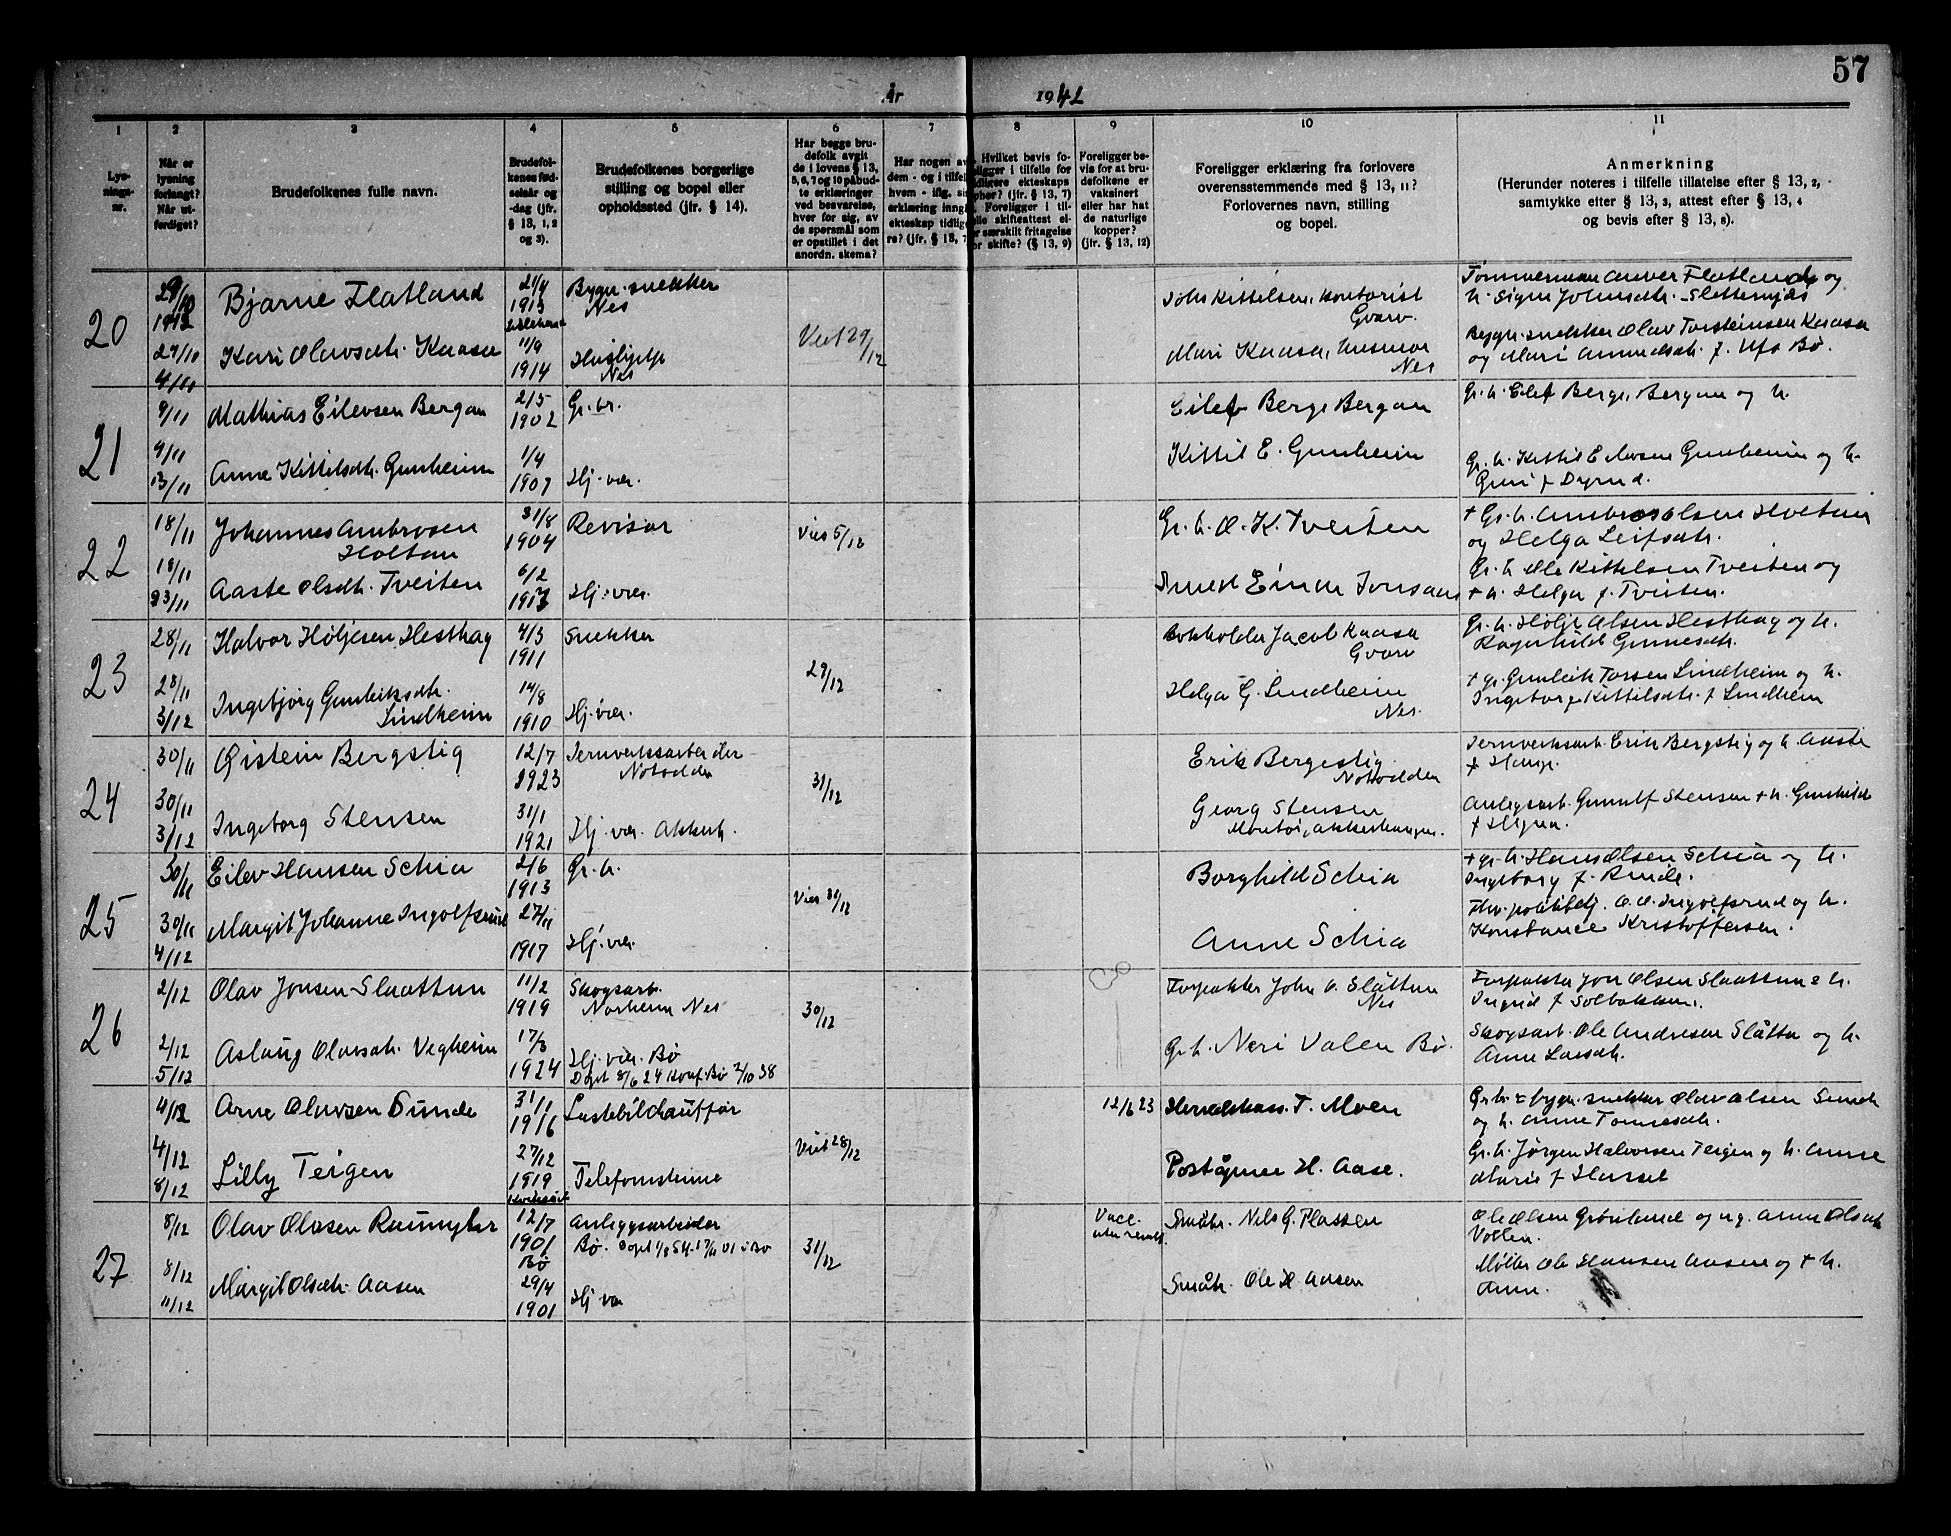 57
år 1942
1 2 3 4 5 6 7 8 9 10 11
Lys-
nings-
nr.
Når er
lysning
forlangt?
Når ut-
ferdiget?
Brudefolkenes fulle navn.
Brudefol-
kenes fød-
selsår og
-dag (jfr.
§ 13, 1, 2
og 3).
Brudefolkenes borgerlige
stilling og bopel eller
opholdssted (jfr. § 14).
Har begge bru-
defolk avgit
de i lovens § 13,
5, 6, 7 og 10 påbud-
te erklæringer
ved besvarelse,
hver for sig, av
de spørsmål som
er opstillet i det
anordn. skema?
Har nogen av
dem - og i tilfel
hvem - iflg. si
erklæring inngå
ekteskap tidlig
re? (jfr. § 13, 7
Hvilket bevis fo-
ligger i tilfelle for
idligere ekteskaps
pher? (jfr. § 13, 7)
Foreligger i til-
elle skifteattest el-
er særskilt fritagelse
or skifte? (§ 13, 9)
Foreligger be-
vis for at bru-
defolkene er
vaksinert
eller har hat
de naturlige
kopper?
(jfr. § 13, 12)
Foreligger erklæring fra forlovere
overensstemmende med § 13, 11?
Forlovernes navn, stilling
og bopel.
Anmerkning
(Herunder noteres i tilfelle tillatelse efter § 13, 2,
samtykke efter § 13, 3, attest efter § 13, 4
og bevis efter § 13, 8).
20
29/10
1942
Bjarne Flatland
21/4
1913
Bygn. snekker
Nes
Johs Kittilsen, kontorist
Gvarv.
Tømmermann Anver Flatland og
h. Signe Johnsdtr. Slettemyås
29/10
4/11
Kari Olavsdtr. Kaasa
11/9
1914
Hushjelp
Nes
Viet 29/12
Mari Kaasa, husmor
Nes
Bygn. snekker Olav Torsteinsen Kaasa
og Mari Amundsdtr. f. Ufs Bø.
21
9/11
Mathias Eilevsen Bergan
2/5
1902
Gr.br.
Eilef Berge Bergan
Gr.h. Eilef Berge Bergan og h.
9/11
13/11
Anne Kittilsdtr. Gunheim
1/4
1907
Hj. vær.
Kittil E. Gunheim
Gr. h. Kittil Eilevsen Gunheim og h.
Guri f. Dyrud.
22
18/11
Johannes Ambrosen
Holtan
31/8
1904
Revisor
Vies 5/12
Gr. h. O. K. Tveiten
+ Gr. h. Ambros Olsen Holtan
og Helga Leifsdtr.
18/11
23/11
Aaste Olsdtr. Tveiten
6/2
1913
Hj. vær.
Smed Einar Jonsaas
Gr. h Ole Kittilsen Tveiten og
+ h. Helga f. Tveiten.
23
28/11
Halvor Høljesen Hesthag
4/3
1911
Snekker
29/12
Bokholder Jacob Kaasa
Gvarv
Gr. h. Hølje Olsen Hesthag og h.
Ragnhild Gunnesdtr.
28/11
3/12
Ingebjørg Gunleiksdtr.
Lindheim
14/8
1910
Hj. vær.
Helga G. Lindheim
Nes.
+ gr. Gunleik Torsen Lindheim og h.
Ingeborg Kittilsdtr. f Lindheim
24
30/11
Øistein Bergstig
12/7
1923
Jernverksarbeider
Notodden
31/12
Erik Bergestig
Notodden
Jernverksarb. Erik Bergstig og h. Aaste
f Hauge.
30/11
3/12
Ingeborg Stensen
31/1
1921
Hj. vær. Akkerh.
Georg Stensen
Montør, Akkerhaugen.
Anlegsarb. Gunulf Stensen + h. Gunhild
25
30/11
Eilev Hansen Schia
2/6
1913
Gr. h.
Vies 31/12
Borghild Schia
+ gr. h. Hans Olsen Schia og h.
Ingeborg f. Rinde.
30/11
4/12
Margit Johanne Ingolfsrud
27/11
1917
Hj. vær.
Anne Schia
Fhv. politibetj. O. O. Ingolfsrud og h.
Konstance Kristoffersen.
26
2/12
Olav Jonsen Slaattun
11/2
1919
Skogsarb.
Norheim Nes
30/12
Forpakter John O. Slåttun
Nes
Forpakter Jon Olsen Slaattun & h.
Ingrid f Solbakken.
2/12
5/12
Aslaug Olavsdtr. Vegheim
17/3
1924
Hj. vær. Bø
Døpt 8/6 24 Konf. Bø 2/10 38
Gr h. Neri Valen Bø.
Skogsarb. Ole Andresen Slåtta og h.
Anne Larsdtr.
4/12
Arne Olavsen Sunde
31/1
1916
Lastebilchauffør
12/6 23
Herredskass. T. Moen
Gr. h. & bygn. snekker Olav Olsen Sunde
og h. Anne Tomesdtr.
4/12
8/12
Lilly Teigen
27/12
1919
Telefonsterine
Viet 28/12
Poståpner H. Aase.
Gr. h. Jørgen Halvorsen Teigen og h. Anne
Marie f Hasset
27
8/12
Olav Olasen Raumyhr
12/7
1901
Bø
Anleggsarbeider
Bø.
31/12
Vacc.
Småbr. Nils G. Plassen
Ole Olsen Grønland og ug. Anne Olsdtr.
Vollen.
8/12
11/12
Margit Olsdtr. Aasen
29/4
1901
Hj vær
Småbr. Ole H. Aasen
Møller Ole Hansen Aasen og + h.
Anne.